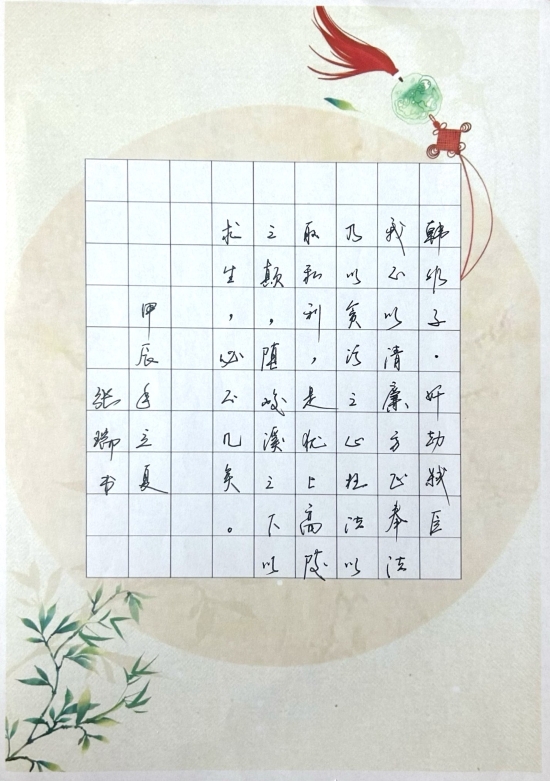 韩非子·奸劫弑臣
我不以清廉方正奉法
乃以贪污之心枉法以
取私利，是犹上高陵
之颠，堕峻溪之下以
求生，必不几矣。
甲辰年立夏
张瑞书